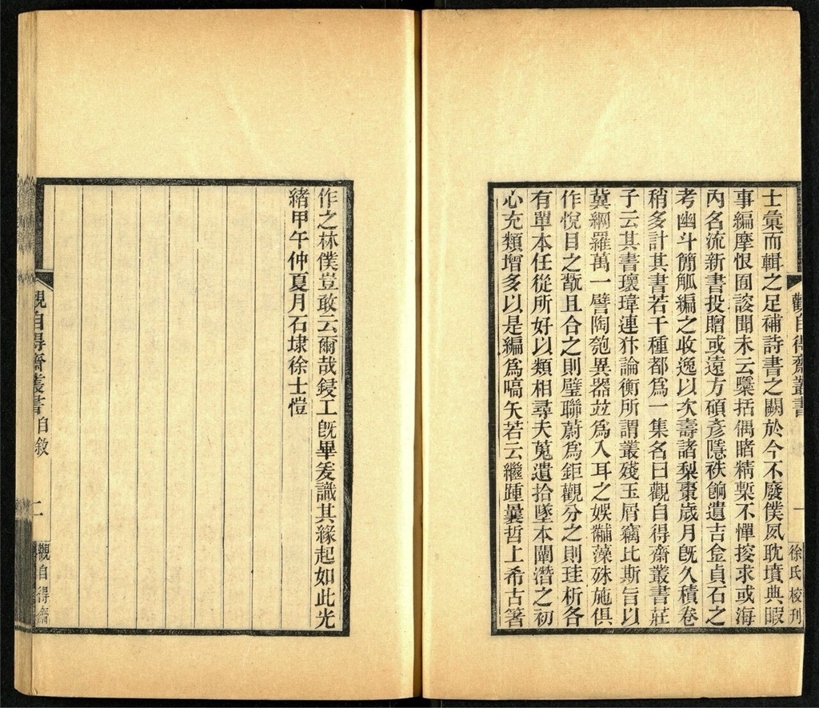 士彙而輯之足補詩書之闕於今不廢僕夙耽墳典暇
事編摩恨囿謏聞未云檃括偶睹精槧不憚搜求或海
內名流新書投贈或遠方碩彥隱袟餉遺吉金貞石之
考幽斗簡觚編之收逸以次壽諸梨棗歲月既久積卷
稍多計其書若干種都為一集名曰觀自得齋叢書莊
子云其書瓌瑋連犿論衡所謂叢殘玉屑竊比斯旨以
冀綱羅萬一譬陶匏異器並為入耳之娛黼藻殊施俱
作悅目之翫且合之則璧聯蔚為鉅觀分之則珪析各
有單本任從所好以類相尋夫蒐遺拾墜本闡潛之初
心充類增多以是編為嚆矢若云繼踵曩哲上希古箸
作之林僕豈敢云爾哉鋟工既畢爰識其緣起如此光
緒甲午仲夏月石埭徐士愷
觀自得齋叢書
一
徐氏校刊
觀自得齋叢書
自敘
二
觀自得齋